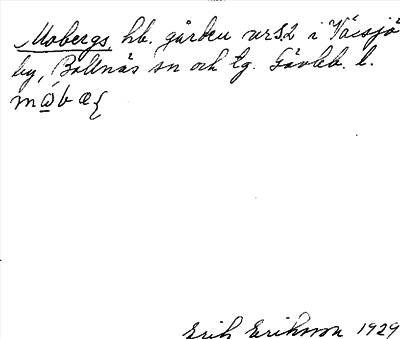 Mobergs, hb. gården nr 52 i Växsjö
by, Bollnäs sn och tg. Gävleb. l.
Erik Eriksson 1929